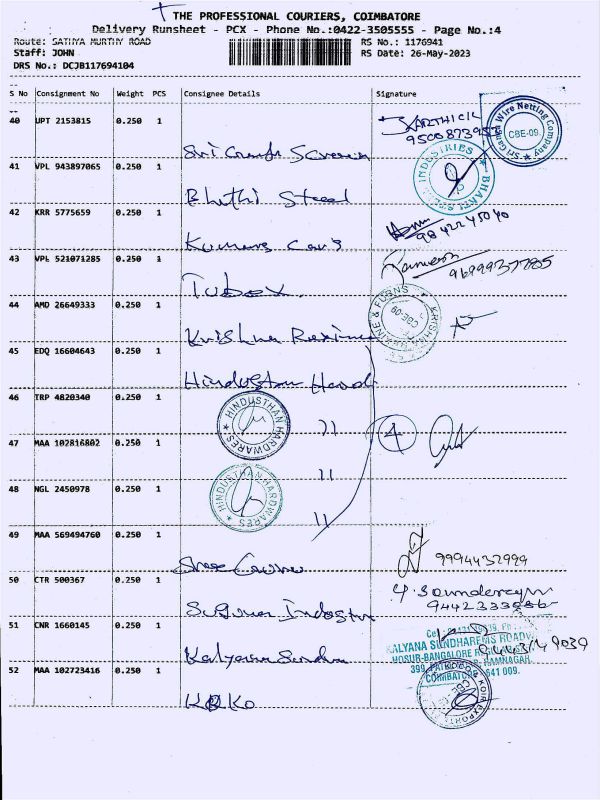 THE PROFESSIONAL COURIERS, COIMBATORE
Delivery Runsheet - PCX - Phone No.:0422-3505555 - Page No.:4
Route: SATHYA MURTHY ROAD
RS No.: 1176941
Staff: JOHN
RS Date: 26-May-2023
DRS No.: DCJB117694104
S No Consignment No Weight PCS Consignee Details Signature
40 UPT 2153815 0.250 1
KARTHICK
Sri Ganga Wire Netting Company CBE-09.
41 VPL 943897065 0.250 1
Bhakthi Steel
BHAKTHI STEEL INDUSTRIES
42 KRR 5775659 0.250 1
Kumars Cars
9842245040
43 VPL 521071285 0.250 1
Tubex
44 AMD 26649333 0.250 1
Krishna Rexine
KRISHNA REXINE & FURNS CBE-09
45 EDQ 16604643 0.250 1
Hindustan Hard
46 TRP 4820340 0.250 1
HINDUSTHAN HARDWARES
"
4
47 MAA 102816802 0.250 1
"
48 NGL 2450978 0.250 1
HINDUSTHAN HARDWARES
"
49 MAA 569494760 0.250 1
Shree
9994432999
50 CTR 500367 0.250 1
Suguna Industri
51 CNR 1660145 0.250 1
Kalyana Sundha
KALYANA SUNDHAREMS ROADW
HOSUR-BANGALORE
RAMNAGAR,
COIMBATORE 641 009.
52 MAA 102723416 0.250 1
KOKO